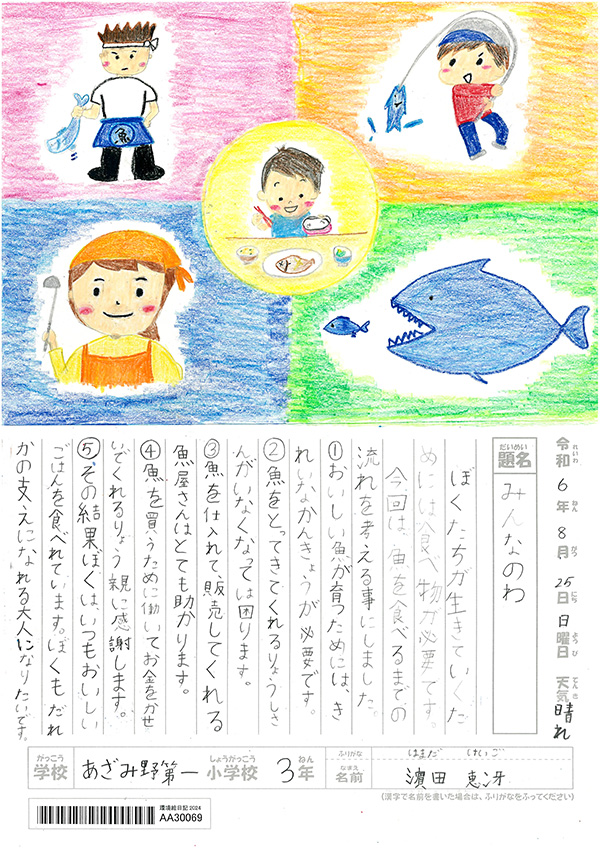 魚
令和6年8月25日日曜日 天気 晴れ
れいわ ねん がつ にち ようび てんき
だいめい
題名
みんなのわ
ぼくたちが生きていくた
めには食べ物が必要です。
今回は、魚を食べるまでの
流れを考える事にしました。
①おいしい魚が育つためには、き
れいなかんきょうが必要です。
②魚をとってきてくれるりょうしさ
んがいなくなっては困ります。
③魚を仕入れて、販売してくれる
魚屋さんはとても助かります。
④魚を買うために働いてお金をかせ
いでくれるりょう親に感謝します。
⑤その結果ぼくは、いつもおいしい
ごはんを食べれています。ぼくもだれ
かの支えになれる大人になりたいです。
がっこう しょうがっこう ねん
学校 あざみ野第一小学校 3年
ふりがな はまだ けいご
なまえ
名前 濱田 恵冴
(漢字で名前を書いた場合は、ふりがなをふってください)
環境絵日記2024
AA30069